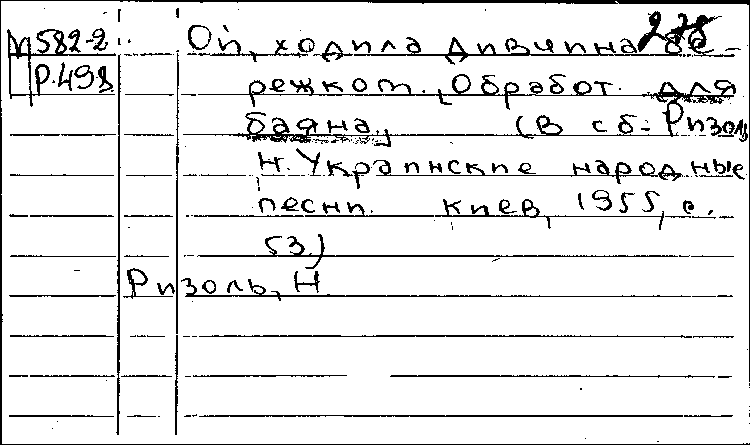 М 582-2 Ой, ходила дивчина бе-
Р.498 режком. [Обработ. для
баяна] (В сб: Ризоль
Н. Украинские народные
песни. Киев, 1955, с.
53.)
Ризоль, Н.